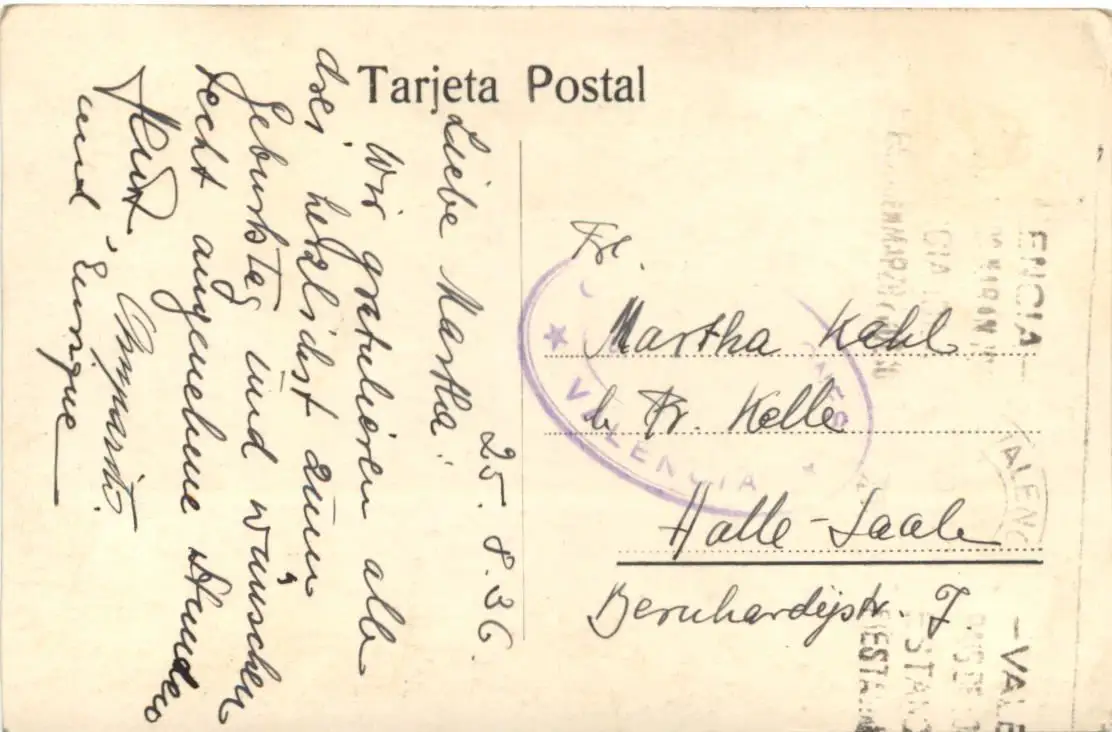 Tarjeta Postal
25. 8. 36.
Liebe Martha!
Wir gratulieren alle
drei herzlichst zum
Geburtstag und wünschen
recht angenehme Stunden
Kurt,
und Enrique
Frl.
Martha Kahl
b. Fr. Kelle
Halle-Saale
Bernhardystr. 7.
VALENCIA
ENCIA
VALENC
-VALE